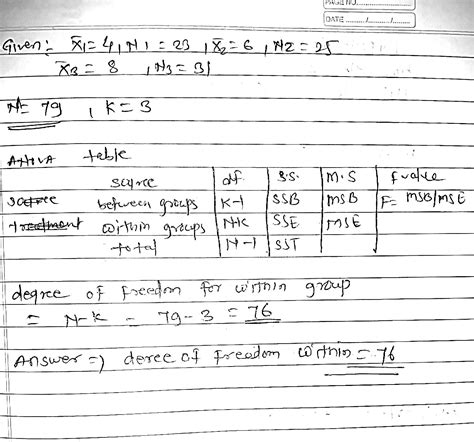 PAGE NO.
DATE / /
Given:- X̄1= 4, N1 = 23, X̄2= 6, N2 = 25
X̄3 = 8, N3 = 31
N= 79, K = 3
ANOVA table
source df S.S. M.S f value
source between groups K-1 SSB MSB F= MSB/MSE
treatment within groups N-K SSE MSE
total N-1 SST
degree of freedom for within group
= N-K = 79-3 = 76
Answer =) deree of freedom within = 76